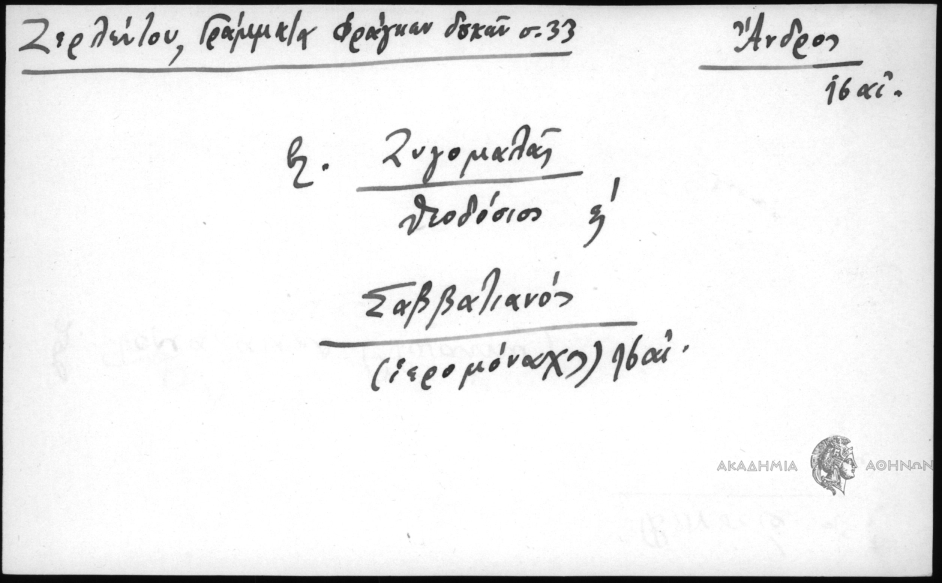 Ζερλέντου, Γράμματα Φράγκων δουκῶν σ. 33
Ἄνδρος
16 αἰ.
ἐ. Ζυγομαλᾶς
Θεοδόσιος ἐ
Σαββατιανός
(ἱερομόναχος) 16 αἰ.
ΑΚΑΔΗΜΙΑ ΑΘΗΝΩΝ